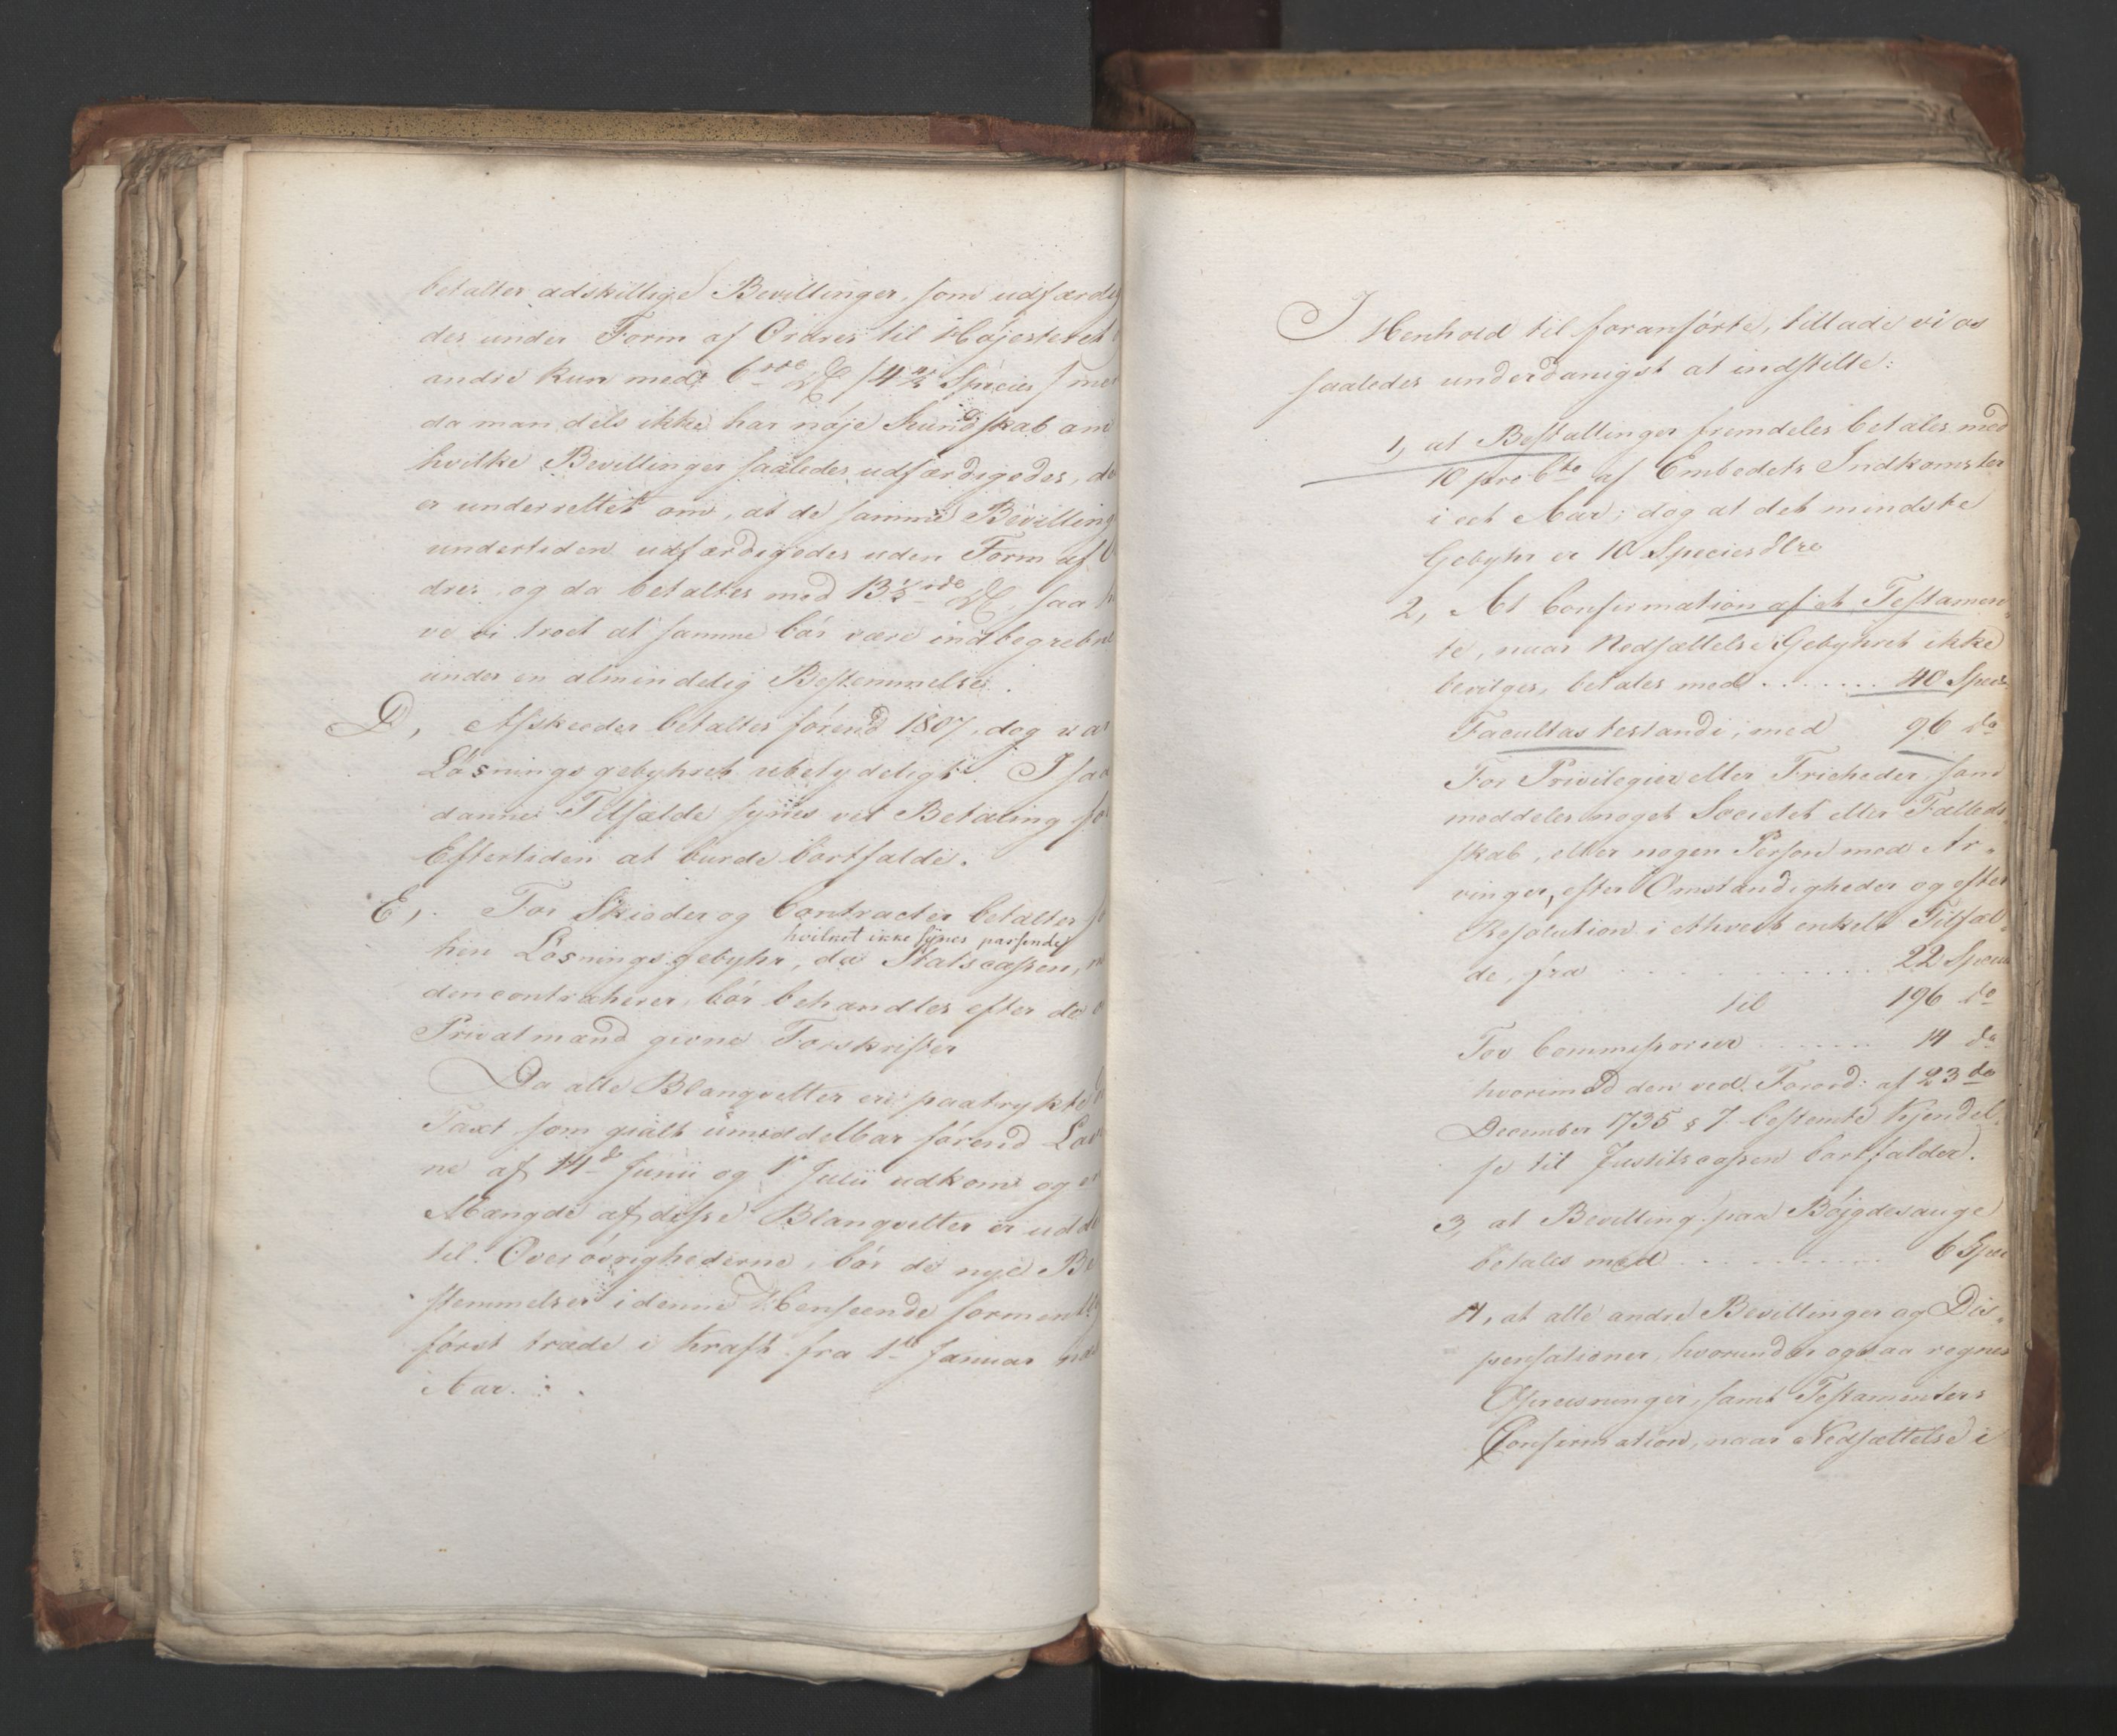 betaltes adskillige Bevillinger, som udfærdig
des under Form af Ordres til Højesteret
andre kun med 6 rdr /4½ Species/ men
da man dels ikke har nøje Kundskab om
hvilke Bevillinger saaledes udfærdigedes, de
er underrettet om, at de samme Bevilling
undertiden udfærdigedes uden Form af O
dres, og da betaltes med 13½ rdr, saa h
ve vi troet at samme bør være indbegrebne
under en almindelig Bestemmelse.
D, Afskeeder betaltes førend 1807, dog var
Løsningsgebyhret ubetydeligt. I saa
danne Tilfælde synes vel Betaling for
Eftertiden at burde bortfalde.
E, For Skiøder og Contracter betaltes f
hvilket ikke synes passende
hen Løsningsgebyhr, da Statscassen, n
den contraherer, bør behandles efter de
Privatmænd givne Forskrifter
Da alle Blanqvetter ere paatrykte
Taxt som gialt umiddelbar førend Lov
ne af 14d Junii og 1 Julii udkom og en
Mængde af disse Blanqvetter er udd
til Overøvrighederne, bør de nye Be
stemmelser i denne Henseende formentlig
først træde i Kraft fra 1ste Januar næs
Aar.
I Henhold til foranførte, tillade vi os
saaledes underdanigst at indstille:
1, at Bestallinger fremdeles betales med
10 pro Cto af Embedets Indkomster
i eet Aar; dog at det mindste
Gebyhr er 10 Speciesdlre
2, At Confirmation af et Testamen„
te, naar Nedsættelse i Gebyhret ikke
bevilges, betales med . . . . . . . 40 Spec
Facultas testandi, med 96 do
For Privilegier eller Friheder, som
meddeles noget Societet eller Fælleds„
skab, eller nogen Person med Ar„
vinger, efter Omstændigheder og efter
Resolution i ethvert enkelt Tilfæl„
de, fra . . . . . . . . . . 22 Specie
til 196 do
For Commissorier . . . . . . . 14 do
hvorimod den ved Forord: af 23 do
December 1735 § 7. bestemte Kjendel„
se til Justitscassen bortfalder.
3, at Bevilling paa Bøjgdesauge
betales med . . . . . . . . . . 6 Spec
4, at alle andre Bevillinger og Dis„
pensationer, hvorunder ogsaa regnes
Opreisninger, samt Testamenters
Confirmation, naar Nedsættelse i